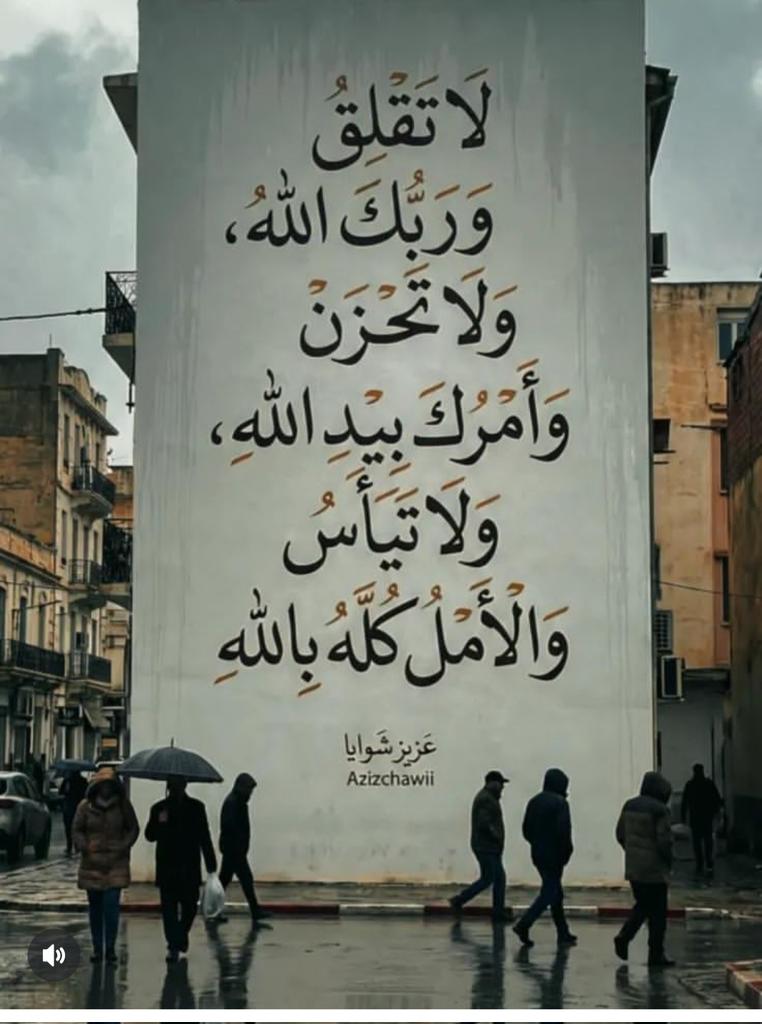 لَا تَقْلِقُ
وَرَبُّكَ اللهُ،
وَلَا تَحْزَنْ
وَأَمْرُكَ بِيَدِ اللهِ،
وَلَا تَيَأَسُ
وَالْأَمْلُ كُلَّهُ بِاللهِ
عَزيز شَوايا
Azizchawii